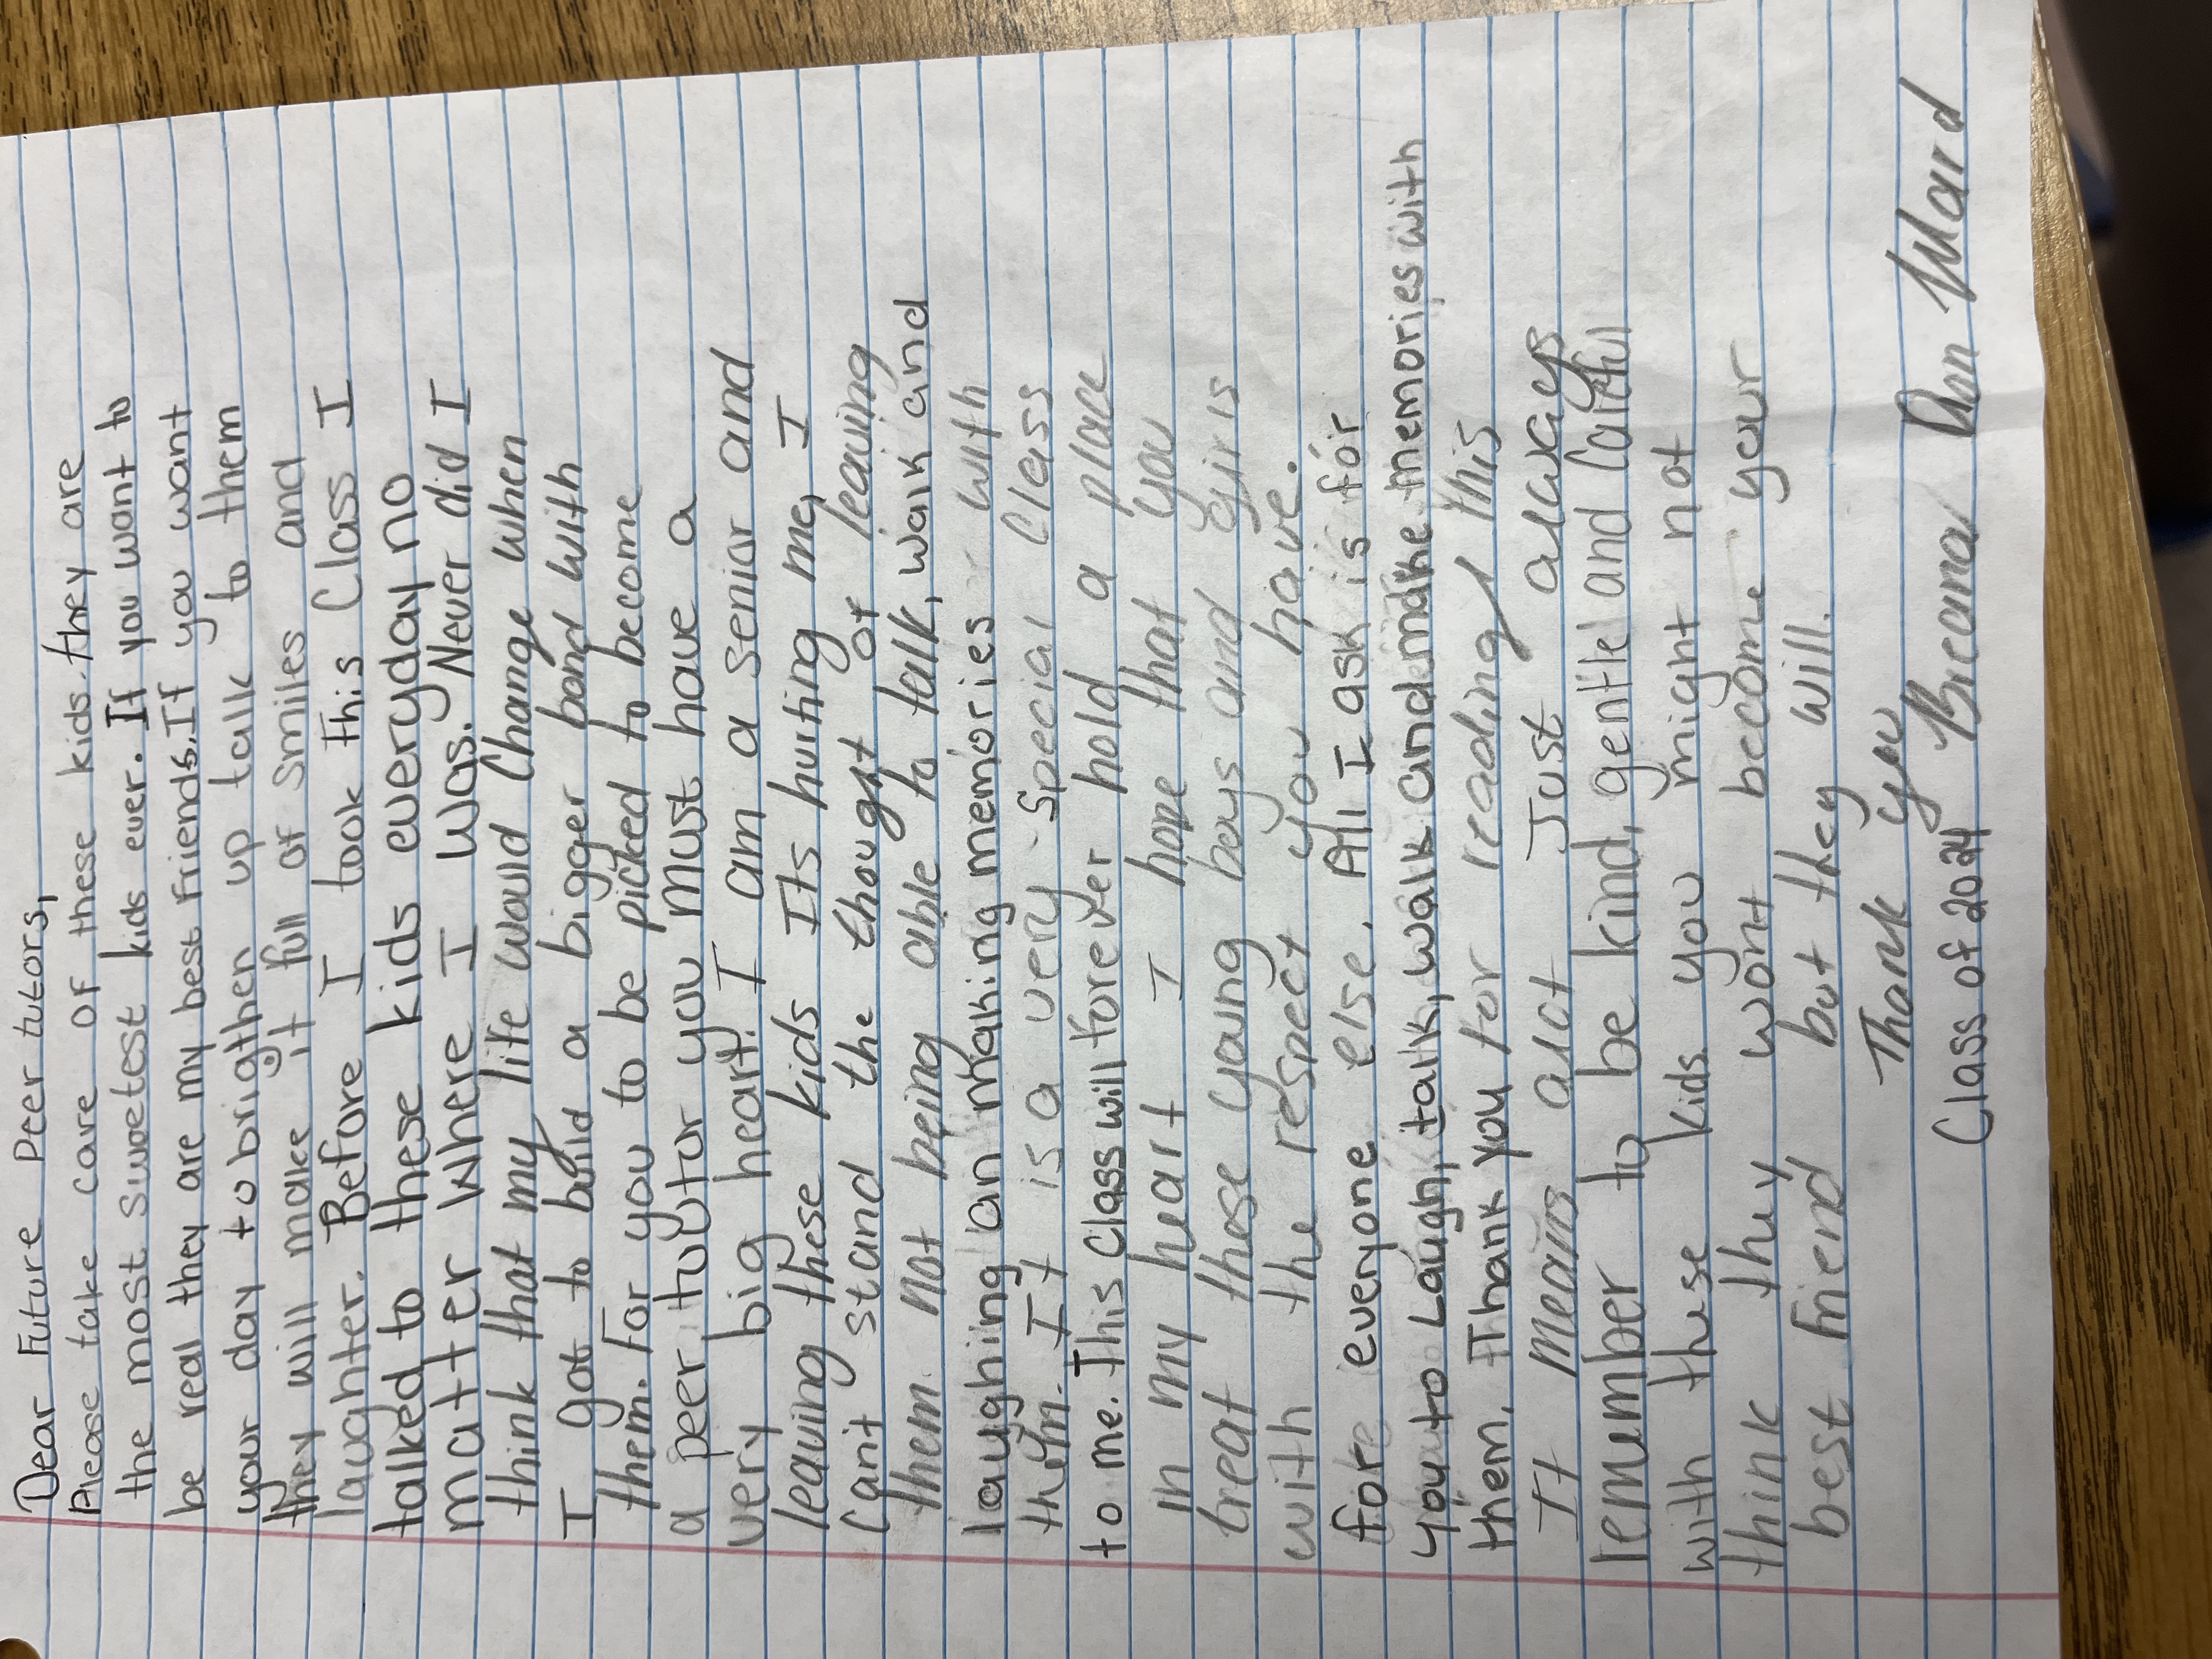 Dear Future Peer tutors,
Please take care of these kids. they are
the most sweetest kids ever. If you want to
be real they are my best friends. If you want
your day to brigthen up talk to them
they will make it full of smiles and
laughter. Before I took this Class I
talked to these kids everyday no
matter where I was. Never did I
think that my life would Change when
I got to build a bigger bond with
them. For you to be picked to become
a peer tutor you must have a
very big heart. I am a senior and
leaving these kids Its hurting me, I
Can't stand the thought of leaving
them. not being able to talk, walk and
laughing an making memories with
them. It is a very special Class
to me. This Class will forever hold a place
in my heart I hope that you
treat these young boys and girls
with the respect you have.
for everyone else. All I ask is for
you to Laugh, talk, walk and make memories with
them. Thank you for reading this
It means alot Just always
remember to be kind, gentle and
with these kids. you might not
think they wont become your
best friend but they will.
Thank you
Class of 2024 Breanna Ann Ward